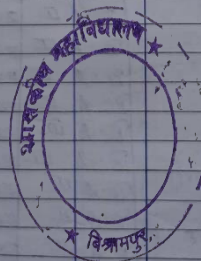 शासकीय महाविद्यालय ★
★ विश्रामपुर